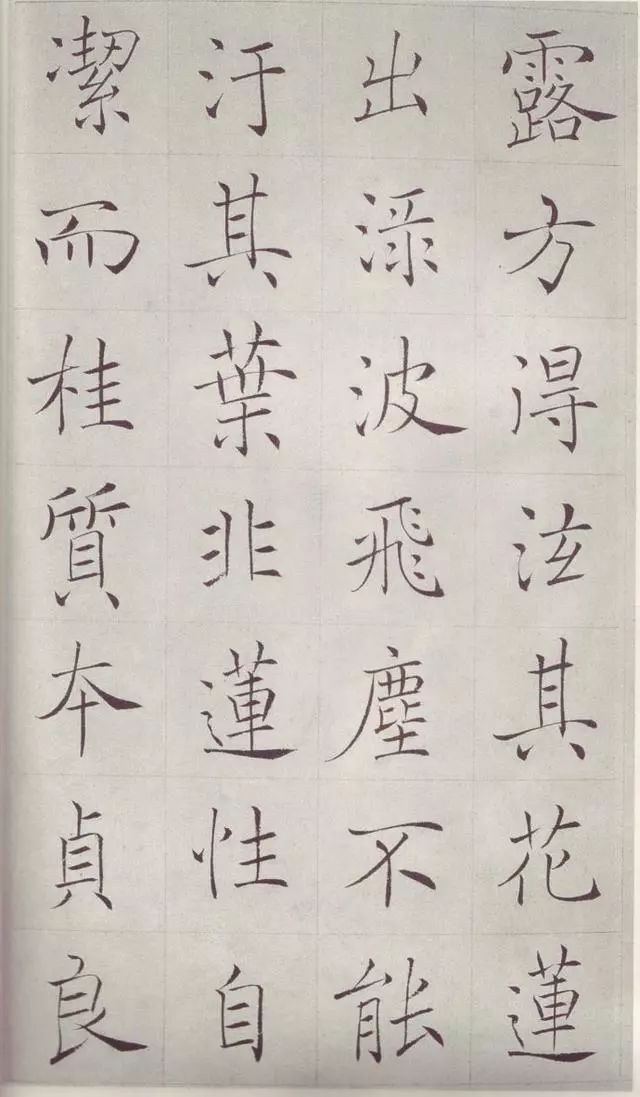 露方得泫其花蓮
出渌波飛塵不能
汙其葉非蓮性自
潔而桂質本貞良